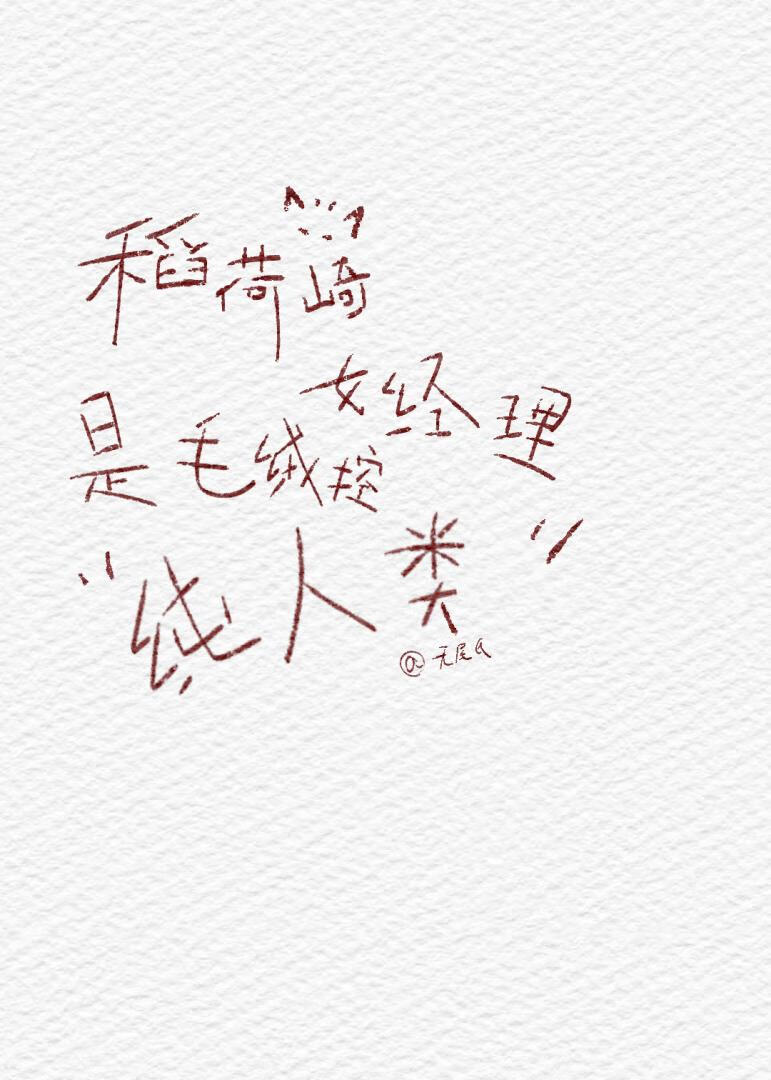 稻荷崎
女经理
是毛绒控
"线人类"
@无尾a